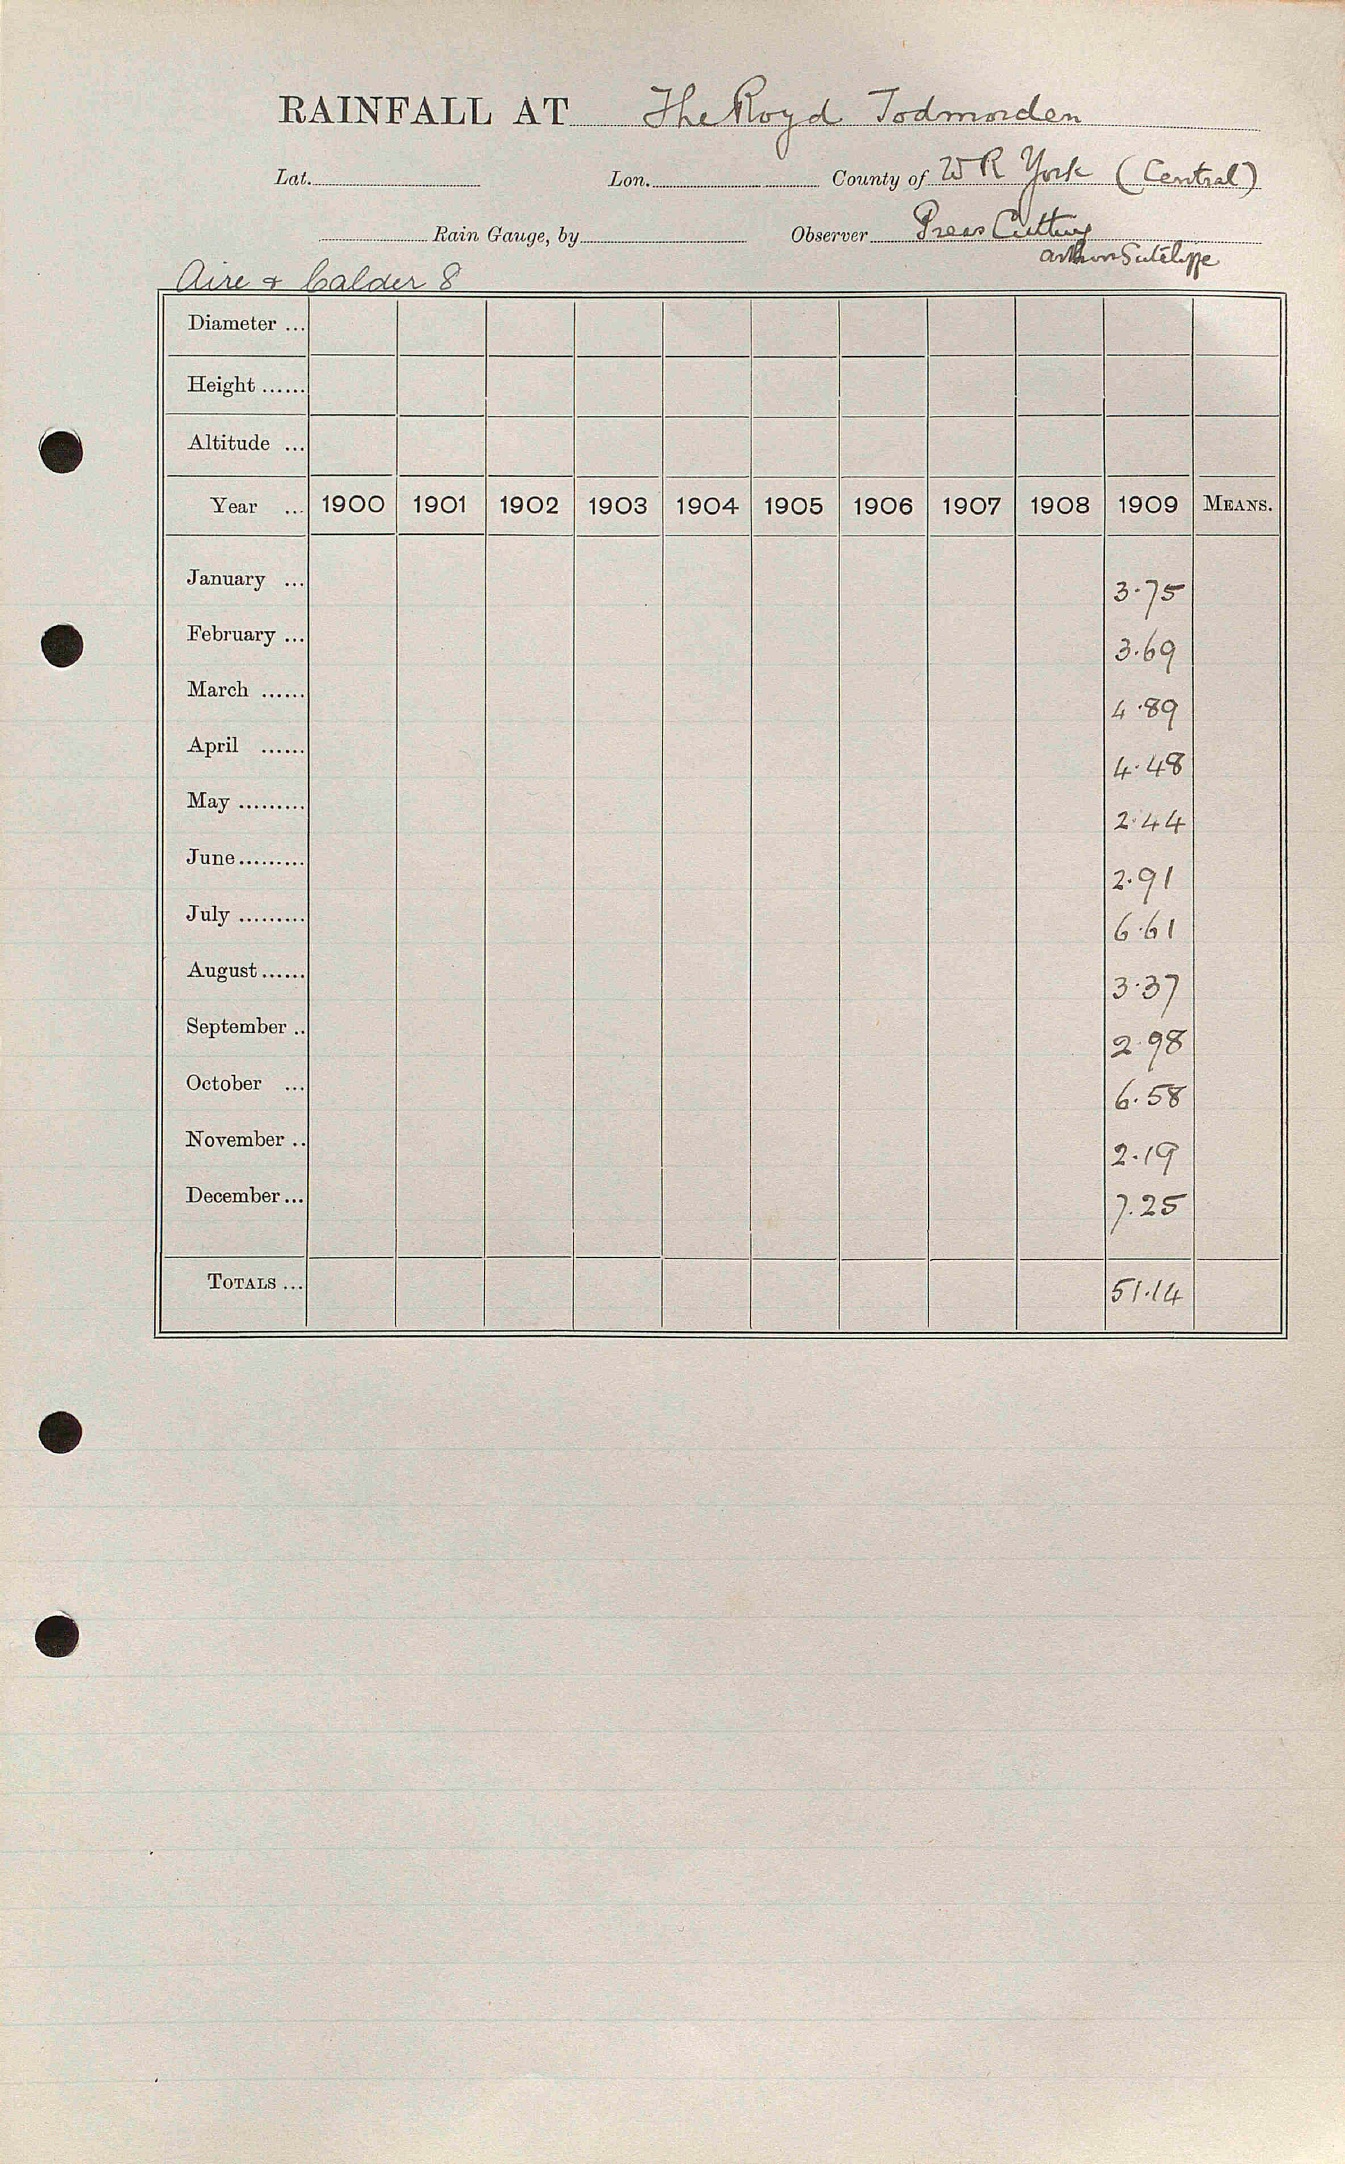 RAINFALL AT The Royd Todmorden
Lat. Lon. County of W R York (Central)
Rain Gauge, by Observer Press Cutting
Arthur Sutcliffe
Aire & Calder 8
Diameter ...
Height ......
Altitude ...
Year ... 1900 1901 1902 1903 1904 1905 1906 1907 1908 1909 MEANS.
January ... 3.75
February ... 3.69
March ...... 4.89
April ...... 4.48
May ......... 2.44
June......... 2.91
July ......... 6.61
August...... 3.37
September .. 2.98
October ... 6.58
November .. 2.19
December... 7.25
TOTALS ... 51.14